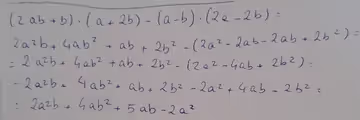 (2ab+b)·(a+2b)-(a-b)·(2a-2b)=
2a²b+4ab²+ab+2b²-(2a²-2ab-2ab+2b²)=
=2a²b+4ab²+ab+2b²-(2a²-4ab+2b²)=
-2a²b+4ab²+ab+2b²-2a²+4ab-2b²=
: 2a²b+4ab²+5ab-2a²